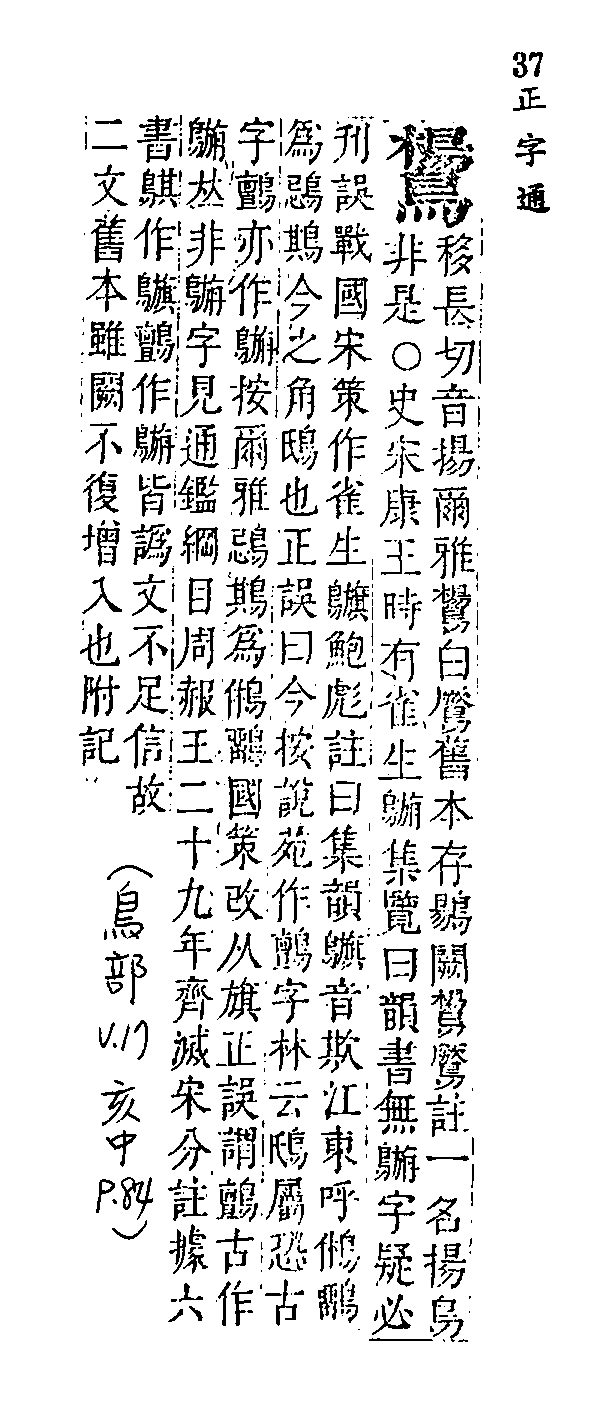 37 正字通
鸉移長切音揚爾雅鸉白鷢舊本存鶍闕鸉鷢註一名揚鳥
非是○史宋康王時有雀生集覽曰韻書無字疑必
刋誤戰國宋策作雀生鮑彪註曰集韻音欺江東呼鵂鶹
為鵋䳢今之角鴟也正誤曰今按說苑作鸇字林云鴟屬恐古
字鸇亦作按爾雅鵋䳢為鵂鶹國策改从旗正誤謂鸇古作
𠀤非字見通鑑綱目周赧王二十九年齊滅宋分註據六
書䳢作鸇作皆譌文不足信故
二文舊本雖闕不復增入也附記
(鳥部 V.17 亥中 P.84)